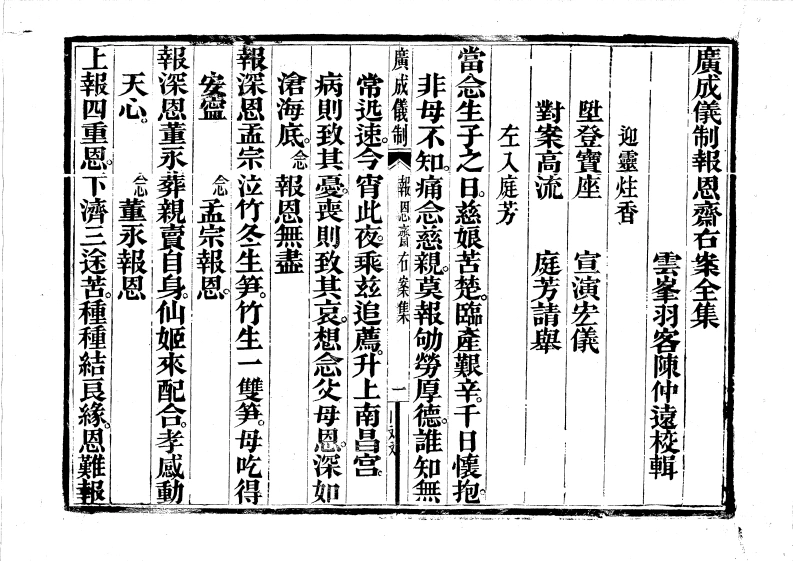 廣成儀制報恩齋右案全集
雲峯羽客陳仲遠校輯
迎靈炷香
陞登寶座 宣演宏儀
對案高流 庭芳請舉
左入庭芳
當念生子之日。慈娘苦楚。臨產艱辛。千日懷抱。
非母不知。痛念慈親。莫報劬勞厚德。誰知無
廣成儀制 報恩齋右案集 一
常迅速。今宵此夜。乘兹追薦。升上南昌宮。
病則致其憂。喪則致其哀。想念父母恩。深如
滄海底。念 報恩無盡
報深恩孟宗泣竹冬生笋。竹生一雙笋。母吃得
安寧 念 孟宗報恩。
報深恩董永葬親賣自身。仙姬來配合。孝感動
天心。念 董永報恩
上報四重恩。下濟三途苦。種種結良緣。恩難報